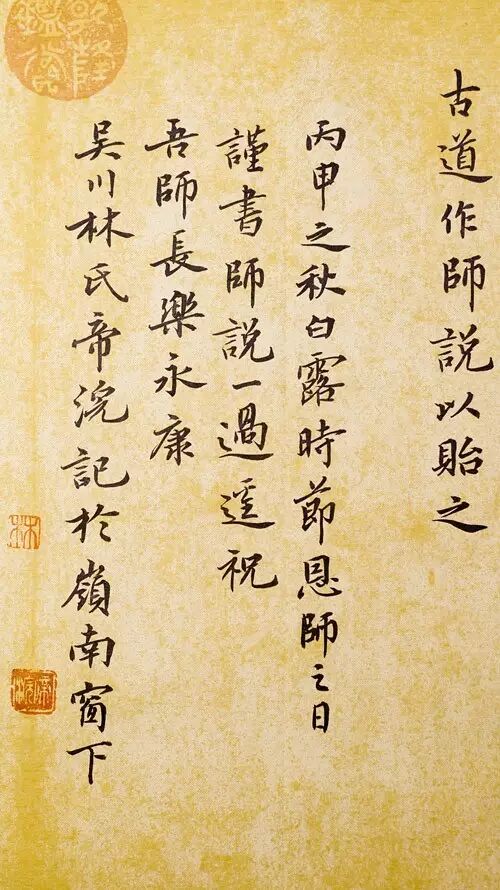 古道作師說以貽之
丙申之秋白露時節恩師之日
謹書師說一過遥祝
吾師長樂永康
吳川林氏帝浣記於嶺南窗下